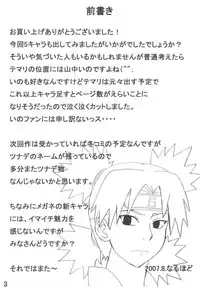 前書き
お買い上げありがとうございました！
今回5キャラも出してみましたがいかがでしたでしょうか？
そういや気づいた人もいるかもしれませんが普通考えたら
テマリの位置には山中いのですよね(^^;
いのファンの方には…テマリは元々出す予定で
これ以上キャラ足すとページ数がえらいことに
なりそうだったので泣く泣くカットしました。
いのファンには申し訳ないッス・・・・
次回作は受かっていれば冬コミの予定なんですが
ツナデのネームが残っているので
多分またツナデ物
なんじゃないかと思います。
ちなみにメガネの新キャラ
には、イマイチ魅力を
感じないんですが
みなさんどうですか？
それではまた〜
2007.8.なるほど
3